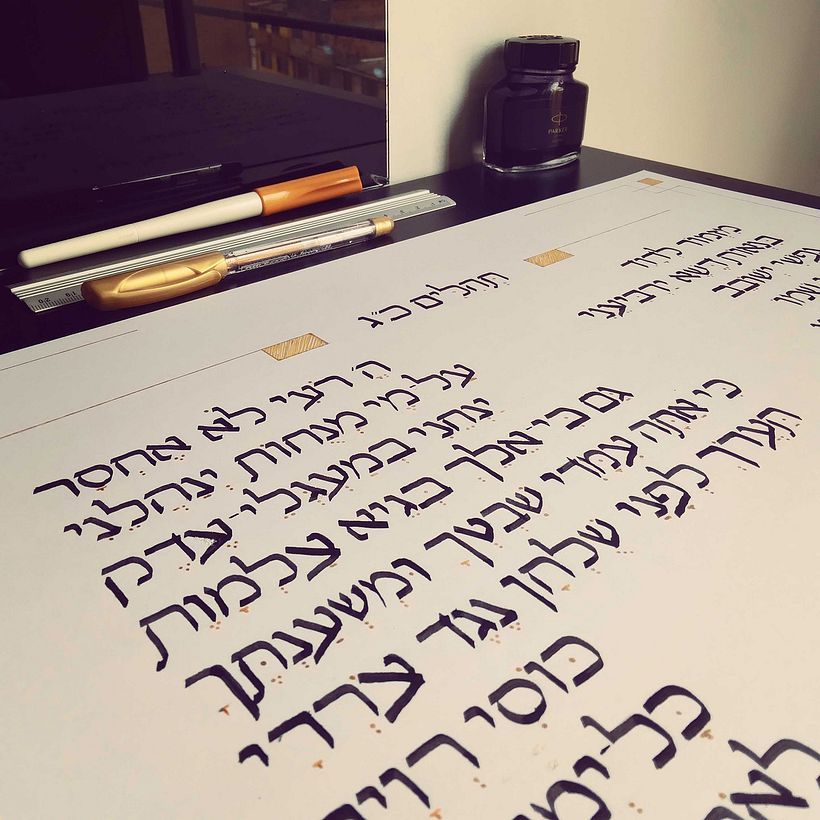 PARKER
תהלים כ"ג
מזמור לדוד
ה' רעי לא אחסר
בנאות דשא ירביצני
על-מי מנחות ינהלני
נפשי ישובב
ינחני במעגלי-צדק
שמו
גם כי-אלך בגיא צלמות
כי אתה עמדי שבטך ומשענתך
תערך לפני שלחן נגד צררי
כוסי רויה